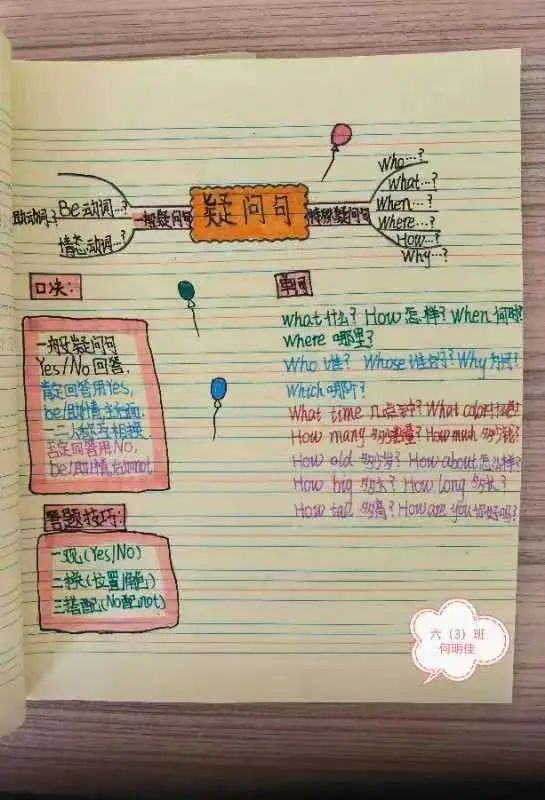 疑问句
一般疑问句
助动词…?
Be动词…?
情态动词…?
特殊疑问句
Who…?
What…?
When…?
Where…?
How…?
Why…?
口决:
一般疑问句
Yes/No 回答.
肯定回答用Yes,
be/助/情
一二人称互相换
否定回答用No,
be/助/情 not.
答题技巧:
一观(Yes/No)
二换(位置/角色)
三搭配(No配not)
单词
what 什么? How 怎样? When 何时?
Where 哪里?
Who 谁? Whose 谁的? Why 为何?
Which 哪
What time 几点钟? What color
How many How much 多少钱?
How old 多少岁? How about 怎么样?
How big 多大? How long 多长?
How tall 多高? How are you 你好吗?
六（3）班
何明佳